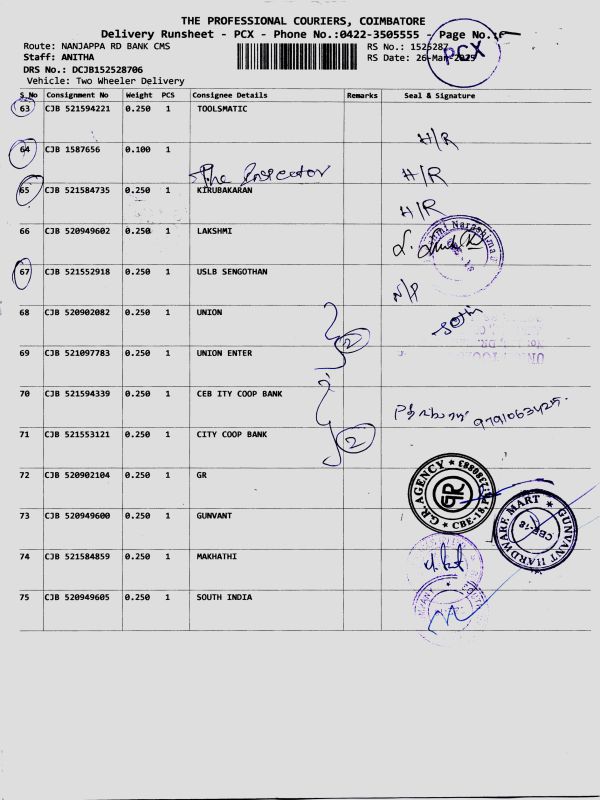 THE PROFESSIONAL COURIERS, COIMBATORE
Delivery Runsheet - PCX - Phone No.:0422-3505555 - Page No.:
Route: NANJAPPA RD BANK CMS
RS No.: 1525287
PCX
Staff: ANITHA
RS Date: 26-Mar-2025
DRS No.: DCJB152528706
Vehicle: Two Wheeler Delivery
S_No Consignment No Weight PCS Consignee Details Remarks Seal & Signature
63 CJB 521594221 0.250 1 TOOLSMATIC
H/R
64 CJB 1587656 0.100 1
The Inspector
H/R
65 CJB 521584735 0.250 1 KIRUBAKARAN
H/R
66 CJB 520949602 0.250 1 LAKSHMI
67 CJB 521552918 0.250 1 USLB SENGOTHAN
N/P
68 CJB 520902082 0.250 1 UNION
2
69 CJB 521097783 0.250 1 UNION ENTER
70 CJB 521594339 0.250 1 CEB ITY COOP BANK
9791063425
71 CJB 521553121 0.250 1 CITY COOP BANK
2
72 CJB 520902104 0.250 1 GR
G.R. AGENCY
GR
CBE-18
73 CJB 520949600 0.250 1 GUNVANT
GUNVANT HARDWARE MART
CBE-18
74 CJB 521584859 0.250 1 MAKHATHI
75 CJB 520949605 0.250 1 SOUTH INDIA